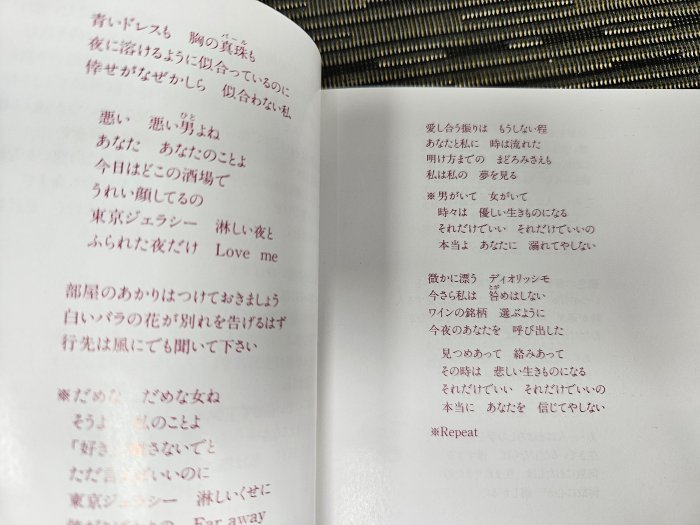 青いドレスも　胸の真珠も
パール
夜に溶けるように似合っているのに
倖せがなぜかしら　似合わない私
悪い　悪い男よね
ひと
あなた　あなたのことよ
今日はどこの酒場で
うれい顔してるの
東京ジェラシー　淋しい夜と
ふられた夜だけ　Love me
部屋のあかりはつけておきましょう
白いバラの花が別れを告げるはず
行先は風にでも聞いて下さい
※だめな　だめな女ね
そうよ　私のことよ
「好き さないでと
ただ言 ばいいのに
東京ジェラシー　淋しいくせに
Far away
愛し合う振りは　もうしない程
あなたと私に　時は流れた
明け方までの　まどろみさえも
私は私の　夢を見る
※男がいて　女がいて
時々は　優しい生きものになる
それだけでいい　それだけでいいの
本当よ　あなたに　溺れてやしない
微かに漂う　ディオリッシモ
今さら私は　咎めはしない
とが
ワインの銘柄　選ぶように
今夜のあなたを　呼び出した
見つめあって　絡みあって
その時は　悲しい生きものになる
それだけでいい　それだけでいいの
本当に　あなたを　信じてやしない
※Repeat